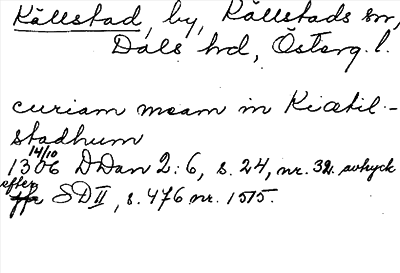 Källstad, by, Källstads sn,
Dals hd, Österg. l.
curiam meam in Kiætil-
stadhum
14/10
1306 DDan 2:6, s. 24, nr. 32. avtryck
efter SD II, s. 476 nr. 1515.